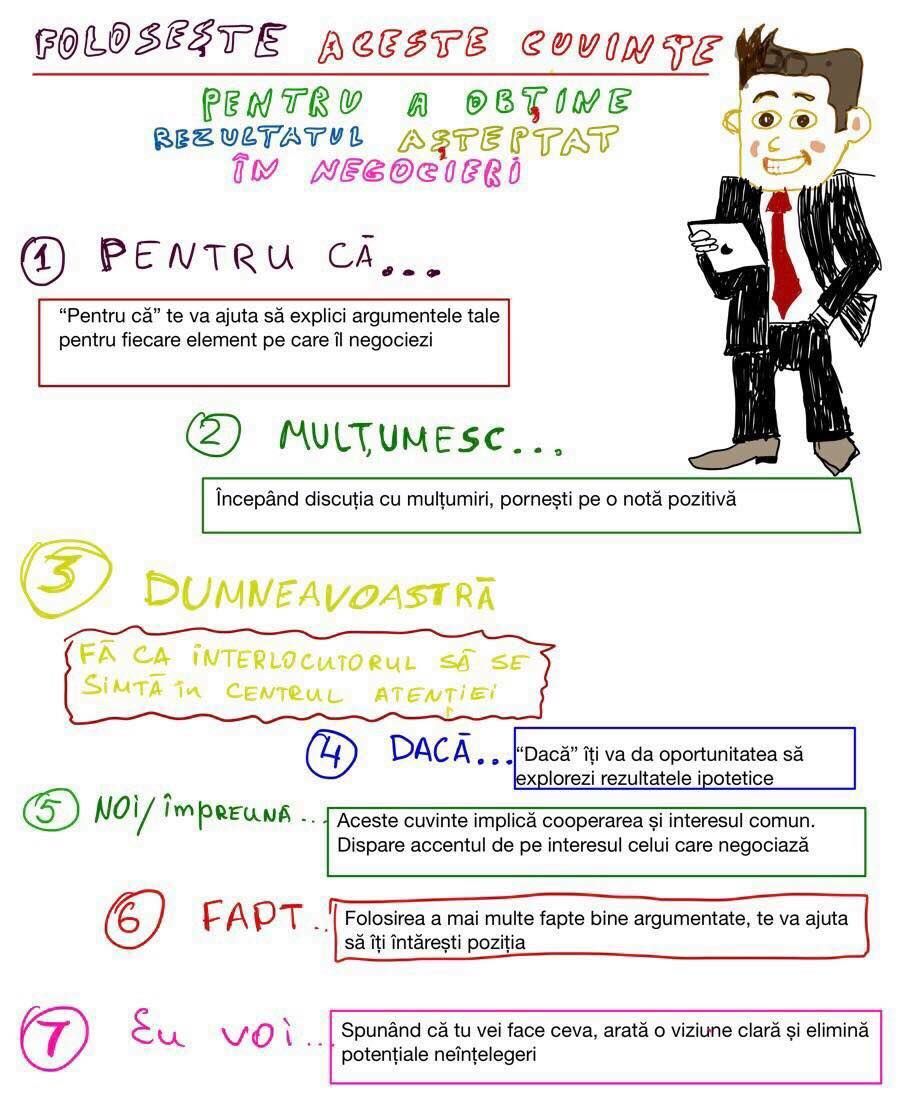 FOLOSEȘTE ACESTE CUVINTE
PENTRU A OBȚINE
REZULTATUL AȘTEPTAT
ÎN NEGOCIERI
1 PENTRU CĂ...
“Pentru că” te va ajuta să explici argumentele tale
pentru fiecare element pe care îl negociezi
2 MULȚUMESC...
Începând discuția cu mulțumiri, pornești pe o notă pozitivă
3 DUMNEAVOASTRĂ
FĂ CA INTERLOCUTORUL SĂ SE
SIMTĂ în CENTRUL ATENȚIEI
4 DACĂ...
“Dacă” îți va da oportunitatea să
explorezi rezultatele ipotetice
5 NOI/ÎMPREUNĂ...
Aceste cuvinte implică cooperarea și interesul comun.
Dispare accentul de pe interesul celui care negociază
6 FAPT..
Folosirea a mai multe fapte bine argumentate, te va ajuta
să îți întărești poziția
7 Eu voi...
Spunând că tu vei face ceva, arată o viziune clară și elimină
potențiale neînțelegeri